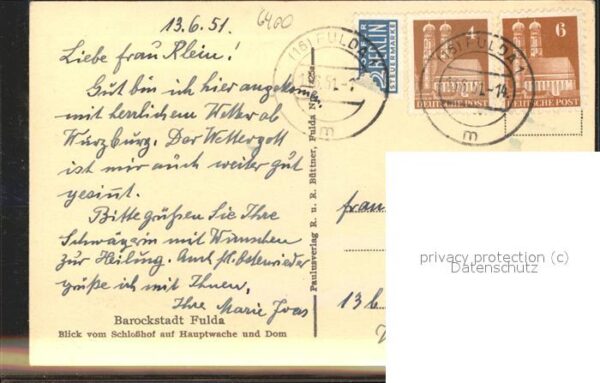 13.6.51.
6400
Liebe Frau Klein!
Gut bin ich hier angekomm.
mit herrlichem Wetter ab
Würzburg. Der Wettergott
ist mir auch weiter gut
gesinnt.
Bitte grüßen Sie Ihre
Schwägerin mit Wünschen
zur Heilung. Auch
grüße ich mit Ihnen,
Ihre Marie Joas
Barockstadt Fulda
Blick vom Schloßhof auf Hauptwache und Dom
Paulusverlag R. u. R. Büttner, Fulda
BERLIN
STEUERMARKE
4
DEUTSCHE POST
6
DEUTSCHE POST
(16) FULDA 1
m
(16) FULDA 1
m
frau
13b
privacy protection (c)
Datenschutz